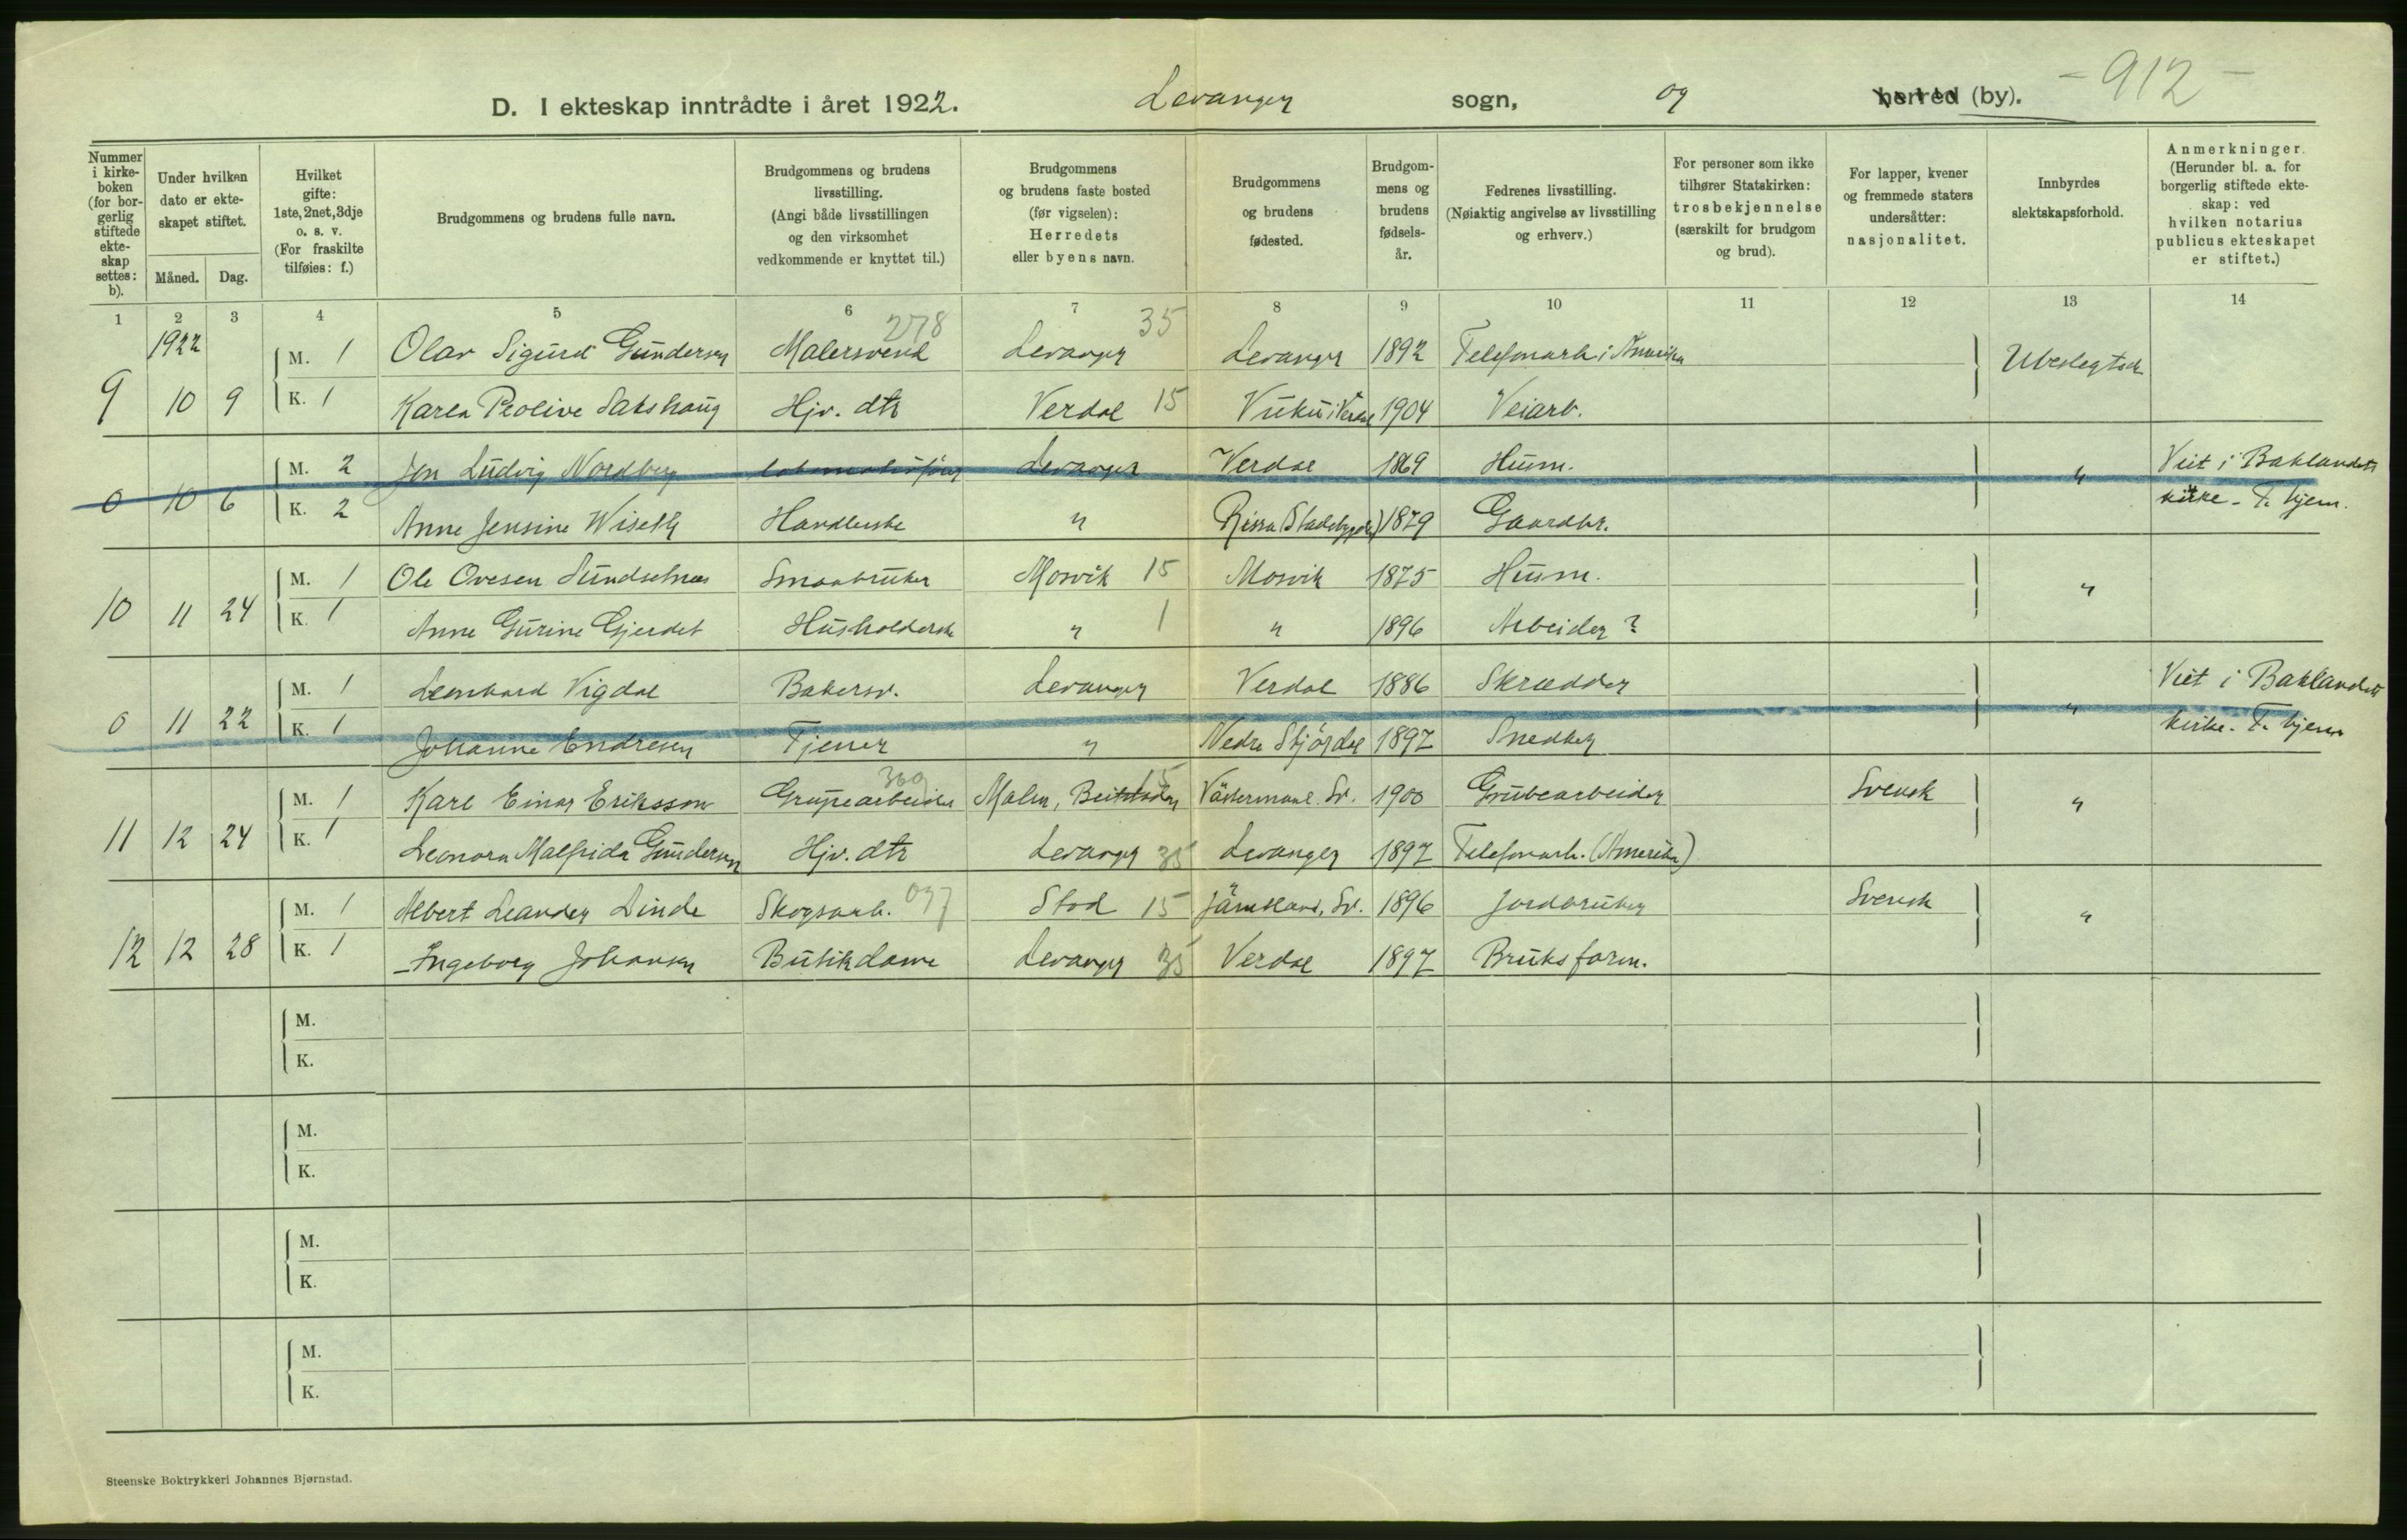 D. I ekteskap inntrådte i året 1922. Levanger sogn, og herred (by). - 912 -
Nummer i kirke- boken (for bor- gerlig stiftede ekte- skap settes: b).
Under hvilken dato er ekte- skapet stiftet.
Måned. Dag.
Hvilket gifte: 1ste, 2net, 3dje o. s. v. (For fraskilte tilføies: f.)
Brudgommens og brudens fulle navn.
Brudgommens og brudens livsstilling. (Angi både livsstillingen og den virksomhet vedkommende er knyttet til.)
Brudgommens og brudens faste bosted (før vigselen): Herredets eller byens navn.
Brudgommens og brudens fødested.
Brudgom- mens og brudens fødsels- år.
Fedrenes livsstilling. (Nøiaktig angivelse av livsstilling og erhverv.)
For personer som ikke tilhører Statskirken: trosbekjennelse (særskilt for brudgom og brud).
For lapper, kvener og fremmede staters undersåtter: nasjonalitet.
Innbyrdes slektskapsforhold.
Anmerkninger. (Herunder bl. a. for borgerlig stiftede ekte- skap: ved hvilken notarius publicus ekteskapet er stiftet.)
1 2 3 4 5 6 7 8 9 10 11 12 13 14
1922 278 35
M. 1 Olav Sigurd Gundersen Malersvend Levanger Levanger 1892 Telefonarb. i Amerika Ubeslegtede
9 10 9 K. 1 Karen Peolive Sakshaug Hjv. dtr Verdal 15 Vuku i Verdal 1904 Veiarb.
M. 2 Jon Ludvig Nordberg Lokomotivfører Levanger Verdal 1869 Husm. " Viet i Baklandets
0 10 6 K. 2 Anne Jensine Wiseth Handlerske " Rissa (Stadsbygden) 1879 Gaardbr. kirke - T. hjem.
M. 1 Ole Ovesen Sundsetnes Smaabruker Mosvik 15 Mosvik 1875 Husm.
10 11 24 K. 1 Anne Gurine Gjerdet Husholderske " 1 " 1896 Arbeider ? "
M. 1 Leonhard Vigdal Bakersv. Levanger Verdal 1886 Skrædder Viet i Baklandets
0 11 22 K. 1 Johanne Endresen Tjener " Nedre Stjørdal 1897 Snedker " kirke. T. hjem
369 15
M. 1 Karl Einar Eriksson Grubearbeider Malm, Beitstaden Västermanl. Sv. 1900 Grubearbeider Svensk "
11 12 24 K. 1 Leonora Malfrida Gundersen Hjv. dtr Levanger 35 Levanger 1897 Telefonarb. (Amerika)
M. 1 Albert Leander Linde Skogsarb. 037 Stod 15 Jämtland, Sv. 1896 Jordbruker Svensk "
12 12 28 K. 1 Ingeborg Johansen Butikdame Levanger 35 Verdal 1897 Bruksform.
M.
K.
M.
K.
M.
K.
M.
K.
Steenske Boktrykkeri Johannes Bjørnstad.